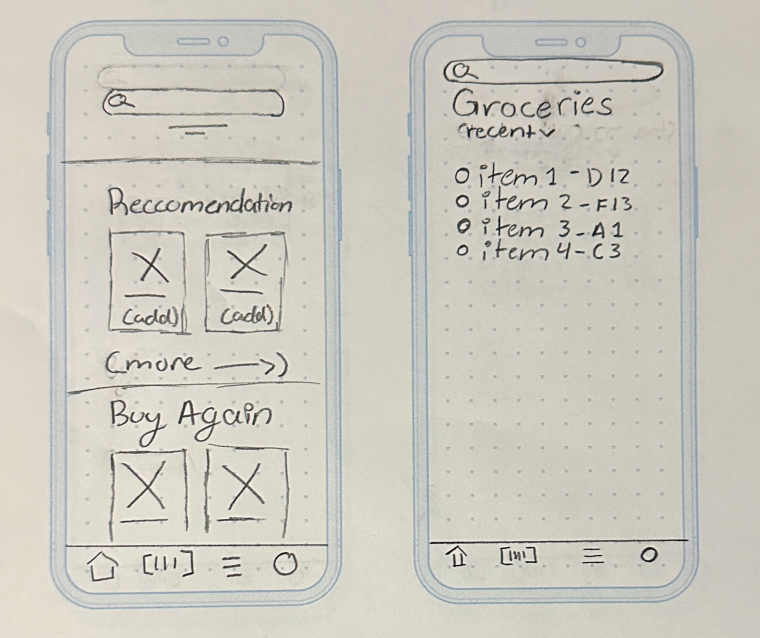 Reccomendation
(add) (add)
(more →)
Buy Again
Groceries
(recent
item 1 - D12
item 2 - F13
item 3 - A1
item 4 - C3